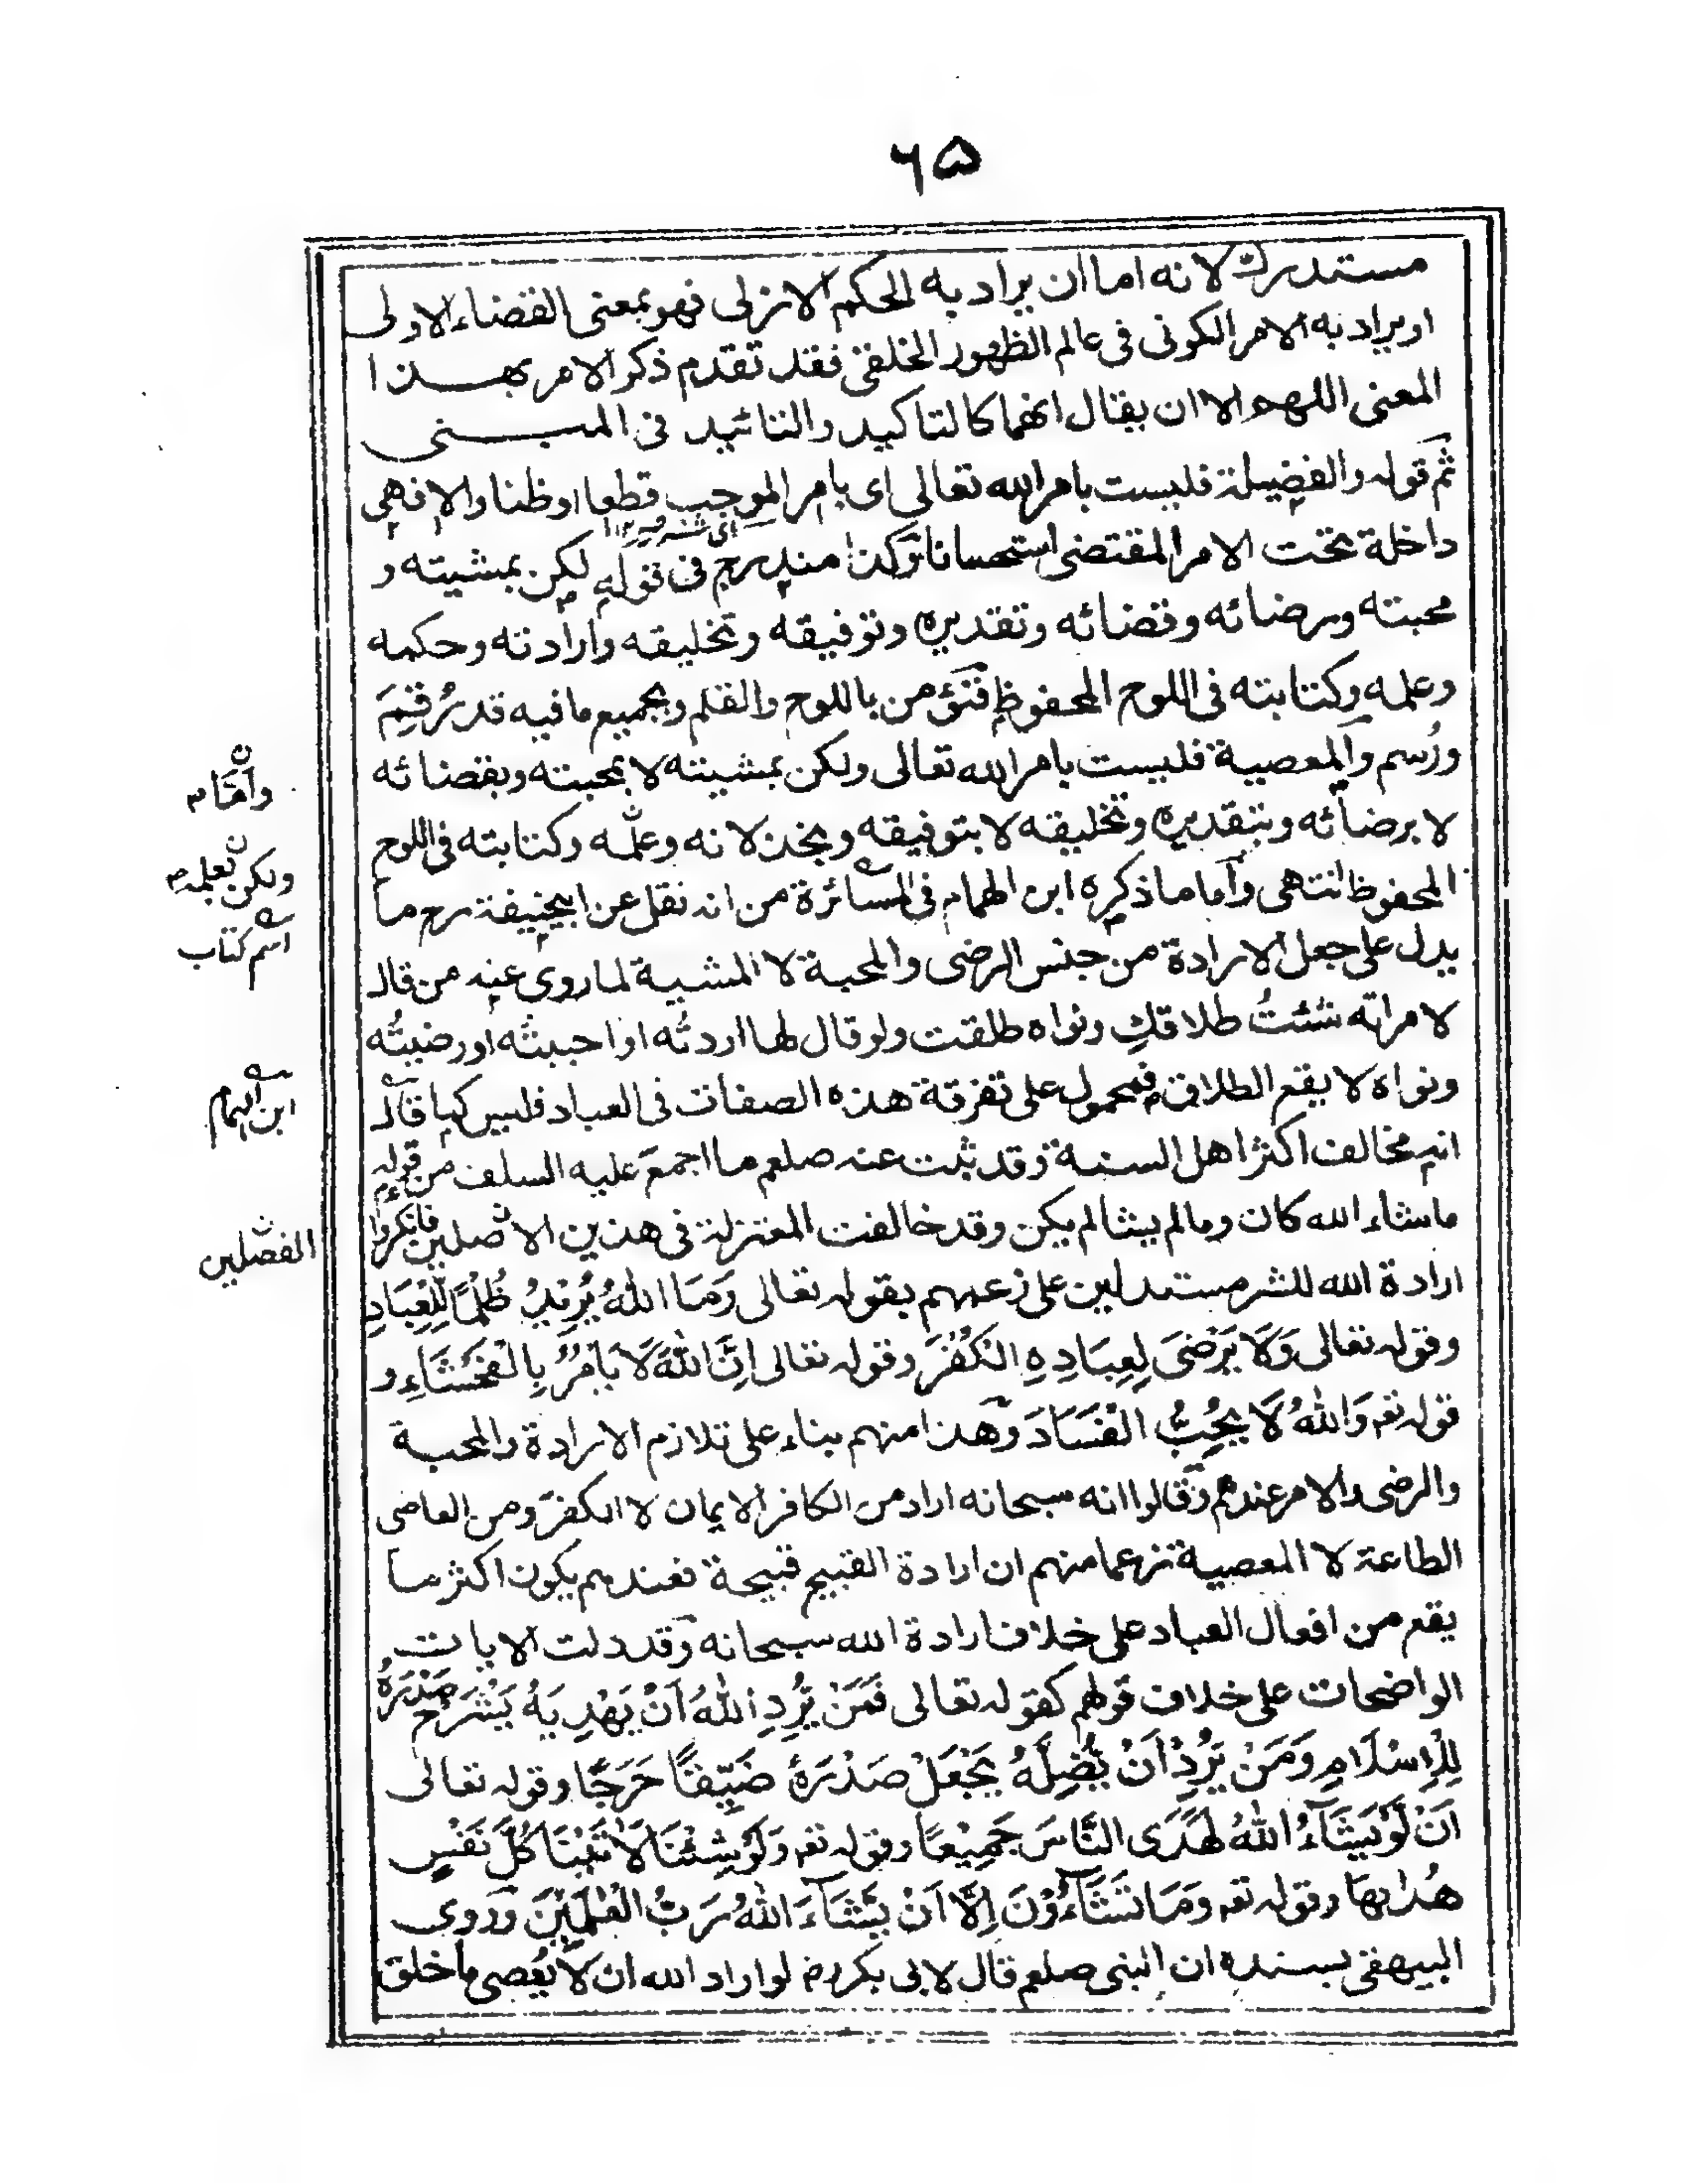 ۶۵
مستدرك لانه اما ان يراد به الحكم الازلى فهو بمعنى القضاء الاولى
او يراد به الامر الكونى فى عالم الظهور الخلقى فقد تقدم ذكر الامر بهذا
المعنى اللهم الا ان يقال انهما كالتاكيد والتائيد فى المبنى
ثم قوله والفضيلة فليست بامر الله تعالى اى بامر الموجب قطعا او ظنا والا فهى
داخلة تحت الامر المقتضى استحسانا وكذا مندرج فى قوله لكن بمشيته و
محبته ورضائه وقضائه وتقديره وتوفيقه وتخليقه وارادته وحكمه
وعلمه وكتابته فى اللوح المحفوظ فنؤمن باللوح والقلم وبجميع ما فيه قد رُقِمَ
ورُسم والمعصية فليست بامر الله تعالى ولكن بمشيته لا بمحبته وبقضائه
لا برضائه وبتقديره وتخليقه لا بتوفيقه وبخذلانه وعلمه وكتابته فى اللوح
المحفوظ انتهى وآما ما ذكره ابن الهمام فى المسائرة من انه نقل عن ابيحنيفة رح ما
يدل على جعل الارادة من جنس الرضى والمحبة لا المشية لما روى عنه من قال
لامراته شئتُ طلاقكِ ونواه طلقت ولو قال لها اردتُه او احببتُه او رضيتُه
ونواه لا يقع الطلاق فمحمول على تفرقة هذه الصفات فى العباد فليس كما قال
انه مخالف اكثر اهل السنة وقد ثبت عنه صلعم ما اجمع عليه السلف من قوله
ماشاء الله كان وما لم يشا لم يكن وقد خالفت المعتزلة فى هذين الاصلين فانكروا
ارادة الله للشر مستدلين على زعمهم بقوله تعالى وَمَا اللهُ يُرِيْدُ ظُلْمًا لِّلْعِبَادِ
وقوله تعالى وَلَا يَرْضَى لِعِبَادِهِ الْكُفْرَ وقوله تعالى اِنَّ اللهَ لَا يَأْمُرُ بِالْفَحْشَاءِ و
قوله تعه وَاللهُ لَا يُحِبُّ الْفَسَادَ وهذا منهم بناء على تلازم الارادة والمحبة
والرضى والامر عندهم وقالوا انه سبحانه اراد من الكافر الايمان لا الكفر ومن العاصى
الطاعة لا المعصية زعما منهم ان ارادة القبيح قبيحة فعندهم يكون اكثر ما
يقع من افعال العباد على خلاف ارادة الله سبحانه وقد دلت الايات
الواضحات على خلاف قولهم كقوله تعالى فَمَنْ يُّرِدِ اللهُ اَنْ يَهْدِيَهُ يَشْرَحْ صَدْرَهُ
لِلْاِسْلَامِ وَمَنْ يُّرِدْ اَنْ يُّضِلَّهُ يَجْعَلْ صَدْرَهُ ضَيِّقًا حَرَجًا وقوله تعالى
اَنْ لَّوْ يَشَآءُ اللهُ لَهَدَى النَّاسَ جَمِيْعًا وقوله تعه وَلَوْ شِئْنَا لَاٰتَيْنَا كُلَّ نَفْسٍ
هُدٰىهَا وقوله تعه وَمَا تَشَآءُوْنَ اِلَّا اَنْ يَّشَآءَ اللهُ رَبُّ الْعٰلَمِيْنَ وروى
البيهقى بسنده ان النبى صلعم قال لابى بكر رض لو اراد الله ان لا يُعصى ما خلق
ن
ولكن بعلمه
اسم كتاب
ابن الهمام
الفصلين